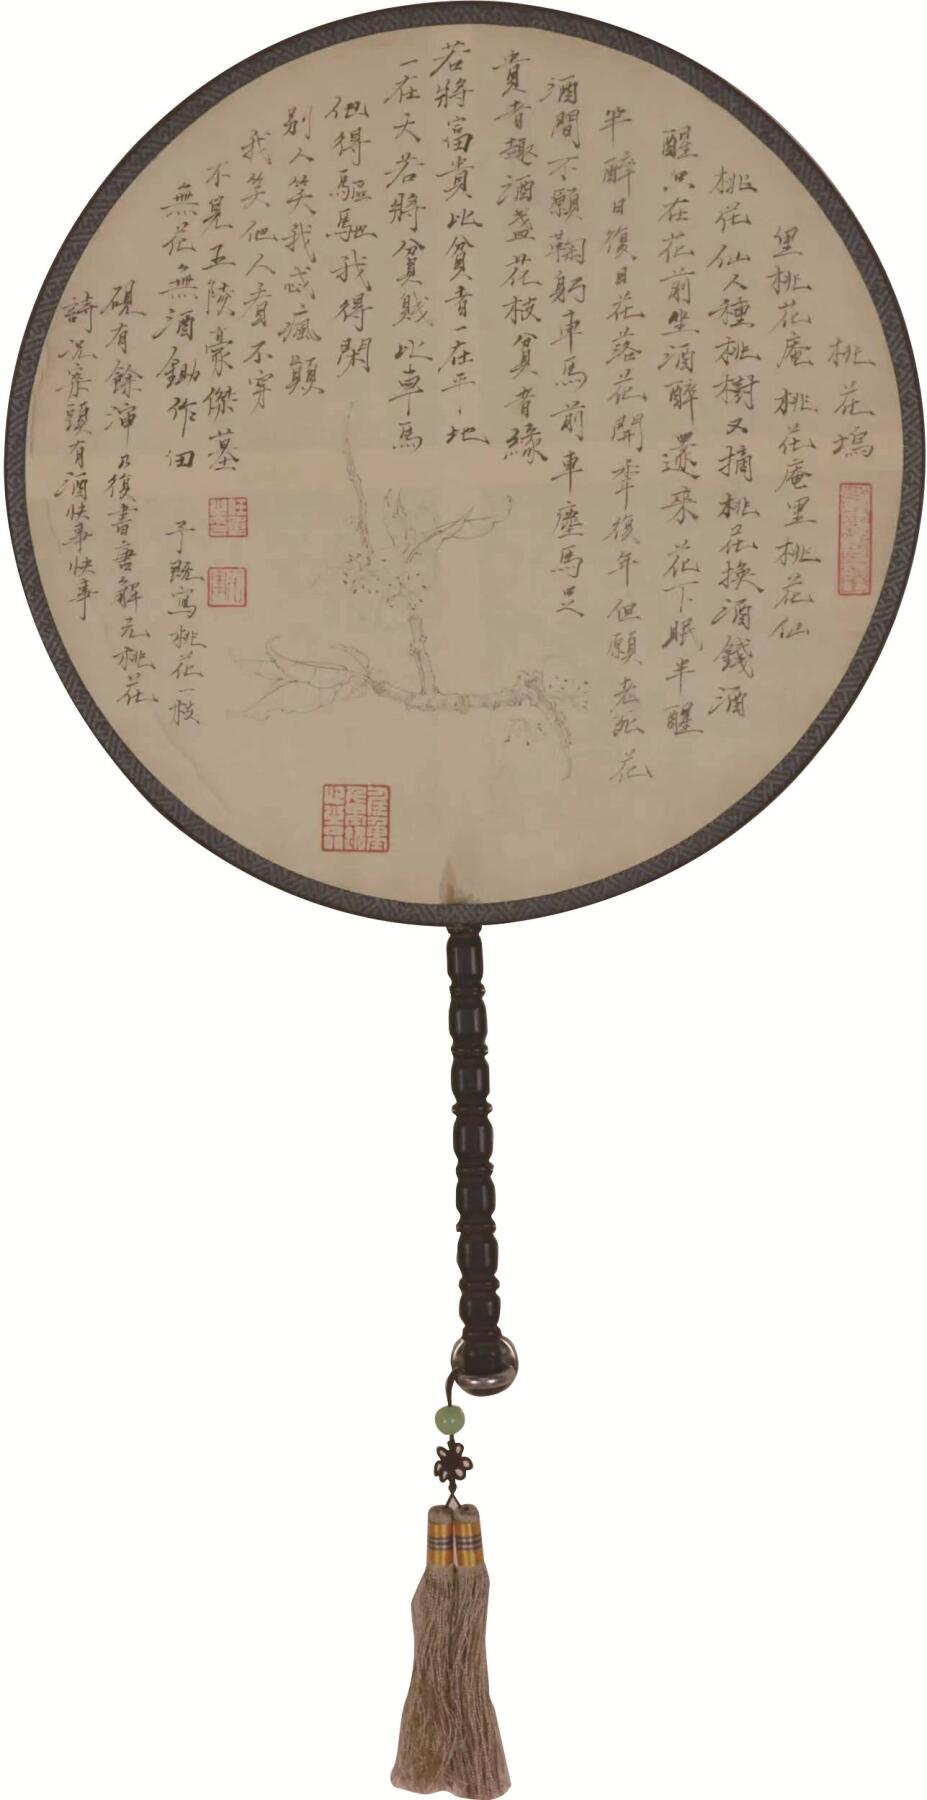 桃花塢
里桃花庵桃花庵里桃花仙
桃花仙人種桃樹又摘桃花換酒錢酒
醒只在花前坐酒醉還來花下眠半醒
半醉日復日花落花開年復年但願老死花
酒間不願鞠躬車馬前車塵馬足
貴者趣酒盞花枝貧者緣
若將富貴比貧者一在平、地
一在天若將貧賤比車馬
他得驅馳我得閑
別人笑我忒瘋顛
我笑他人看不穿
不見五陵豪傑墓
無花無酒鋤作田 予既寫桃花一枝
硯有餘渖乃復書唐解元桃花
詩況案頭有酒快事快事